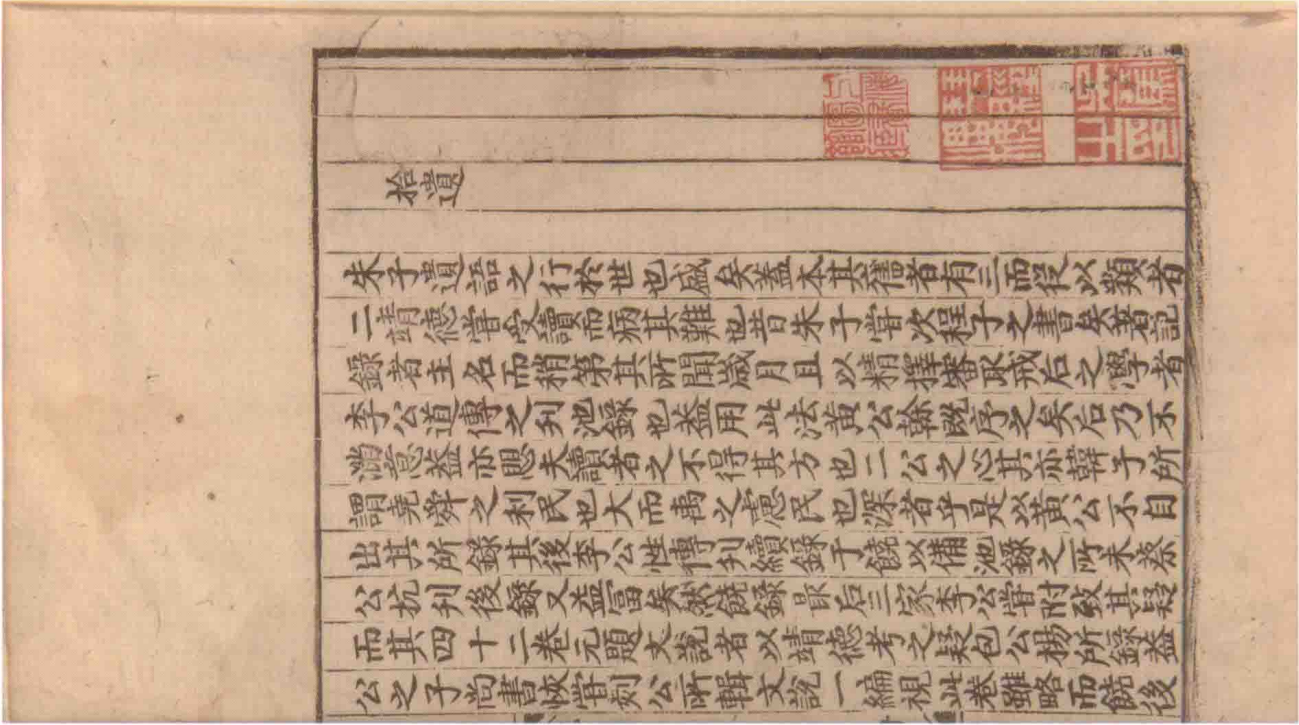 拾遺
朱子遺語之行於世也盛矣葢本其舊者有三而從以類者
二靖德嘗受讀而病其難也昔朱子嘗次程子之書矣著記
錄者主名而稍第其所聞歲月且以精擇審取戒后之學者
李公道傳之刋池錄也葢用此法黃公榦既序之矣后乃不
滿意葢亦懼夫讀者之不得其方也二公之心其亦韓子所
謂堯舜之利民也大而禹之慮民也深者乎是以黃公不自
出其所錄其後李公性傳刋續錄于饒以備池錄之所未蔡
公抗刋後錄又益富矣然饒錄最后三家李公嘗附致其疑
而其四十二卷元題文說者以靖德考之疑包公楊所錄葢
公之子尚書恢嘗刻公所輯文說一編視此卷雖略而饒後